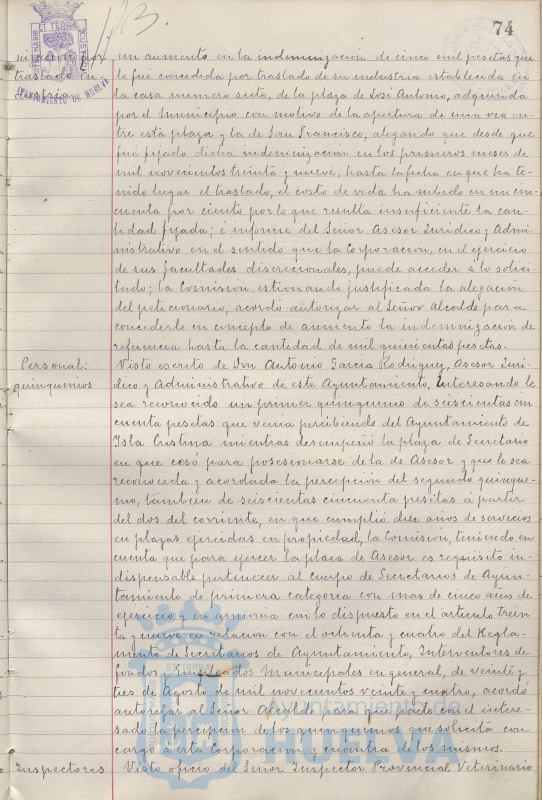 74
nización por
traslado in-
dustria
AYUNTAMIENTO DE HUELVA
un aumento en la indemnización de cinco mil pesetas que
le fué concedida por traslado de su industria establecida en
la casa numero siete, de la plaza de José Antonio, adquirida
por el Municipio con motivo de la apertura de una via en-
tre esta plaza y la de San Francisco, alegando que desde que
fué fijado dicha indemnización en los primeros meses de
mil novecientos treinta y nueve, hasta la fecha en que ha te-
nido lugar el traslado, el costo de vida ha subido en un cin-
cuenta por ciento por lo que resulta insuficiente la can-
tidad fijada; é informe del Señor Asesor Jurídico y Admi-
nistrativo en el sentido que la Corporacion, en el ejercicio
de sus facultades discrecionales, puede acceder á lo solici-
tado; la Comision estimando justificada la alegación
del peticionario, acordó autorizar al Señor Alcalde para
concederle en concepto de aumento la indemnización de
referencia hasta la cantidad de mil quinientas pesetas.
Personal:
quinquenios
Visto escrito de Don Antonio Garcia Rodriguez, Asesor Juri-
dico y Administrativo de este Ayuntamiento, interesando le
sea reconocido un primer quinquenio de seiscientas cin-
cuenta pesetas que venia percibiendo del Ayuntamiento de
Isla Cristina mientras desempeñó la plaza de Secretario
en que cesó para posesionarse de la de Asesor y que le sea
reconocida y acordada la percepción del segundo quinque-
nio, tambien de seiscientas cincuenta pesetas á partir
del dos del corriente, en que cumplió diez años de servicios
en plazas ejercidas en propiedad, la Comision, teniendo en
cuenta que para ejercer la plaza de Asesor es requisito in-
dispensable pertenecer al cuerpo de Secretarios de Ayun-
tamiento de primera categoria con mas de cinco años de
ejercicio y en armonia con lo dispuesto en el articulo trein
ta y nueve en relacion con el ochenta y cuatro del Regla-
mento de Secretarios de Ayuntamieto, Interventores de
fondos y empleados Municipales en general, de veinte y
tres de Agosto de mil novecientos veinte y cuatro, acordó
autorizar al Señor Alcalde para que pacte con el intere-
sado la percepción de los quinquenios que solicita con
cargo a esta Corporacion y cuantia de los mismos.
Inspectores
Visto oficio del Señor Inspector Provincial Veterinario
Ayuntamiento de
HUELVA